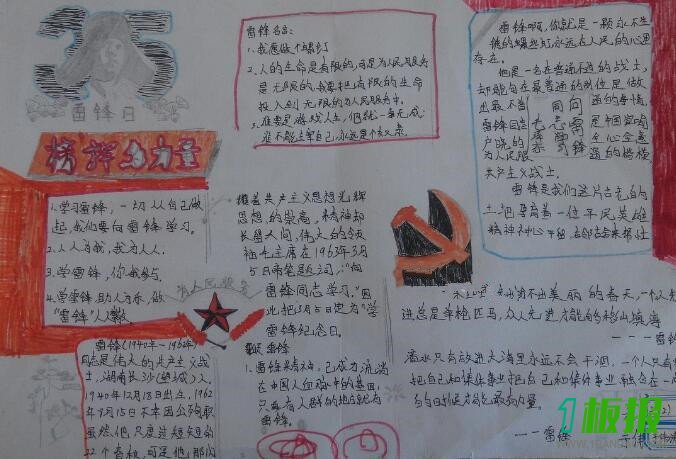 35
雷锋日
榜样的力量
1.学习雷锋，一切从自己做
起，我们要向雷锋学习。
2.人人为我，我为人人。
3.学雷锋，你我参与。
4.学雷锋，助人为乐，做
"雷锋"人
雷锋(1940年—1962年)
同志是伟大的共产主义战
士，湖南长沙(望城)人，
1940年12月18日出生，1962
年8月15日不幸因公殉职
虽然，他只度过短短的
22个春秋，可是他，那闪
雷锋名言：
1.我愿做个螺丝钉
2.人的生命是有限的，可是为人民服务
是无限的，我要把有限的生命
投入到无限的为人民服务中。
3.谁要是游戏人生，他就一事无成；
谁不能主宰自己，永远是个奴隶。
共产主义思想光辉
思想的崇高，精神却
长留人间，伟大的领
袖毛主席在1963年3月
5日亲笔题词，"向
雷锋同志学习。"因
此把3月5日定为"学
雷锋纪念日。
为人民服务
雷锋
1.雷锋精神，已成为流淌
在中国人血脉中的基因，
只要有人群的地方就有
雷锋。
雷锋啊，你就是一颗永不生
锈的螺丝钉永远在人民的心里
存在。
他是一名在普通不过的战士，
却能够在最普通的岗位是做
出最不普通的事情，
雷锋同志是中国家喻
户晓的全心全意
为人民服务的楷模
共产主义战士。
雷锋是我们这片古老的
土地孕育着一位平民英雄
向雷锋同志学习
一朵鲜花打扮不出美丽的春天，一个人先
进总是单枪匹马，众人先进才能移山填海
——雷锋
滴水只有放进大海里永远不会干涸，一个人只有
把自己和集体事业融合在一起
才能最有力量。
——雷锋
1板报